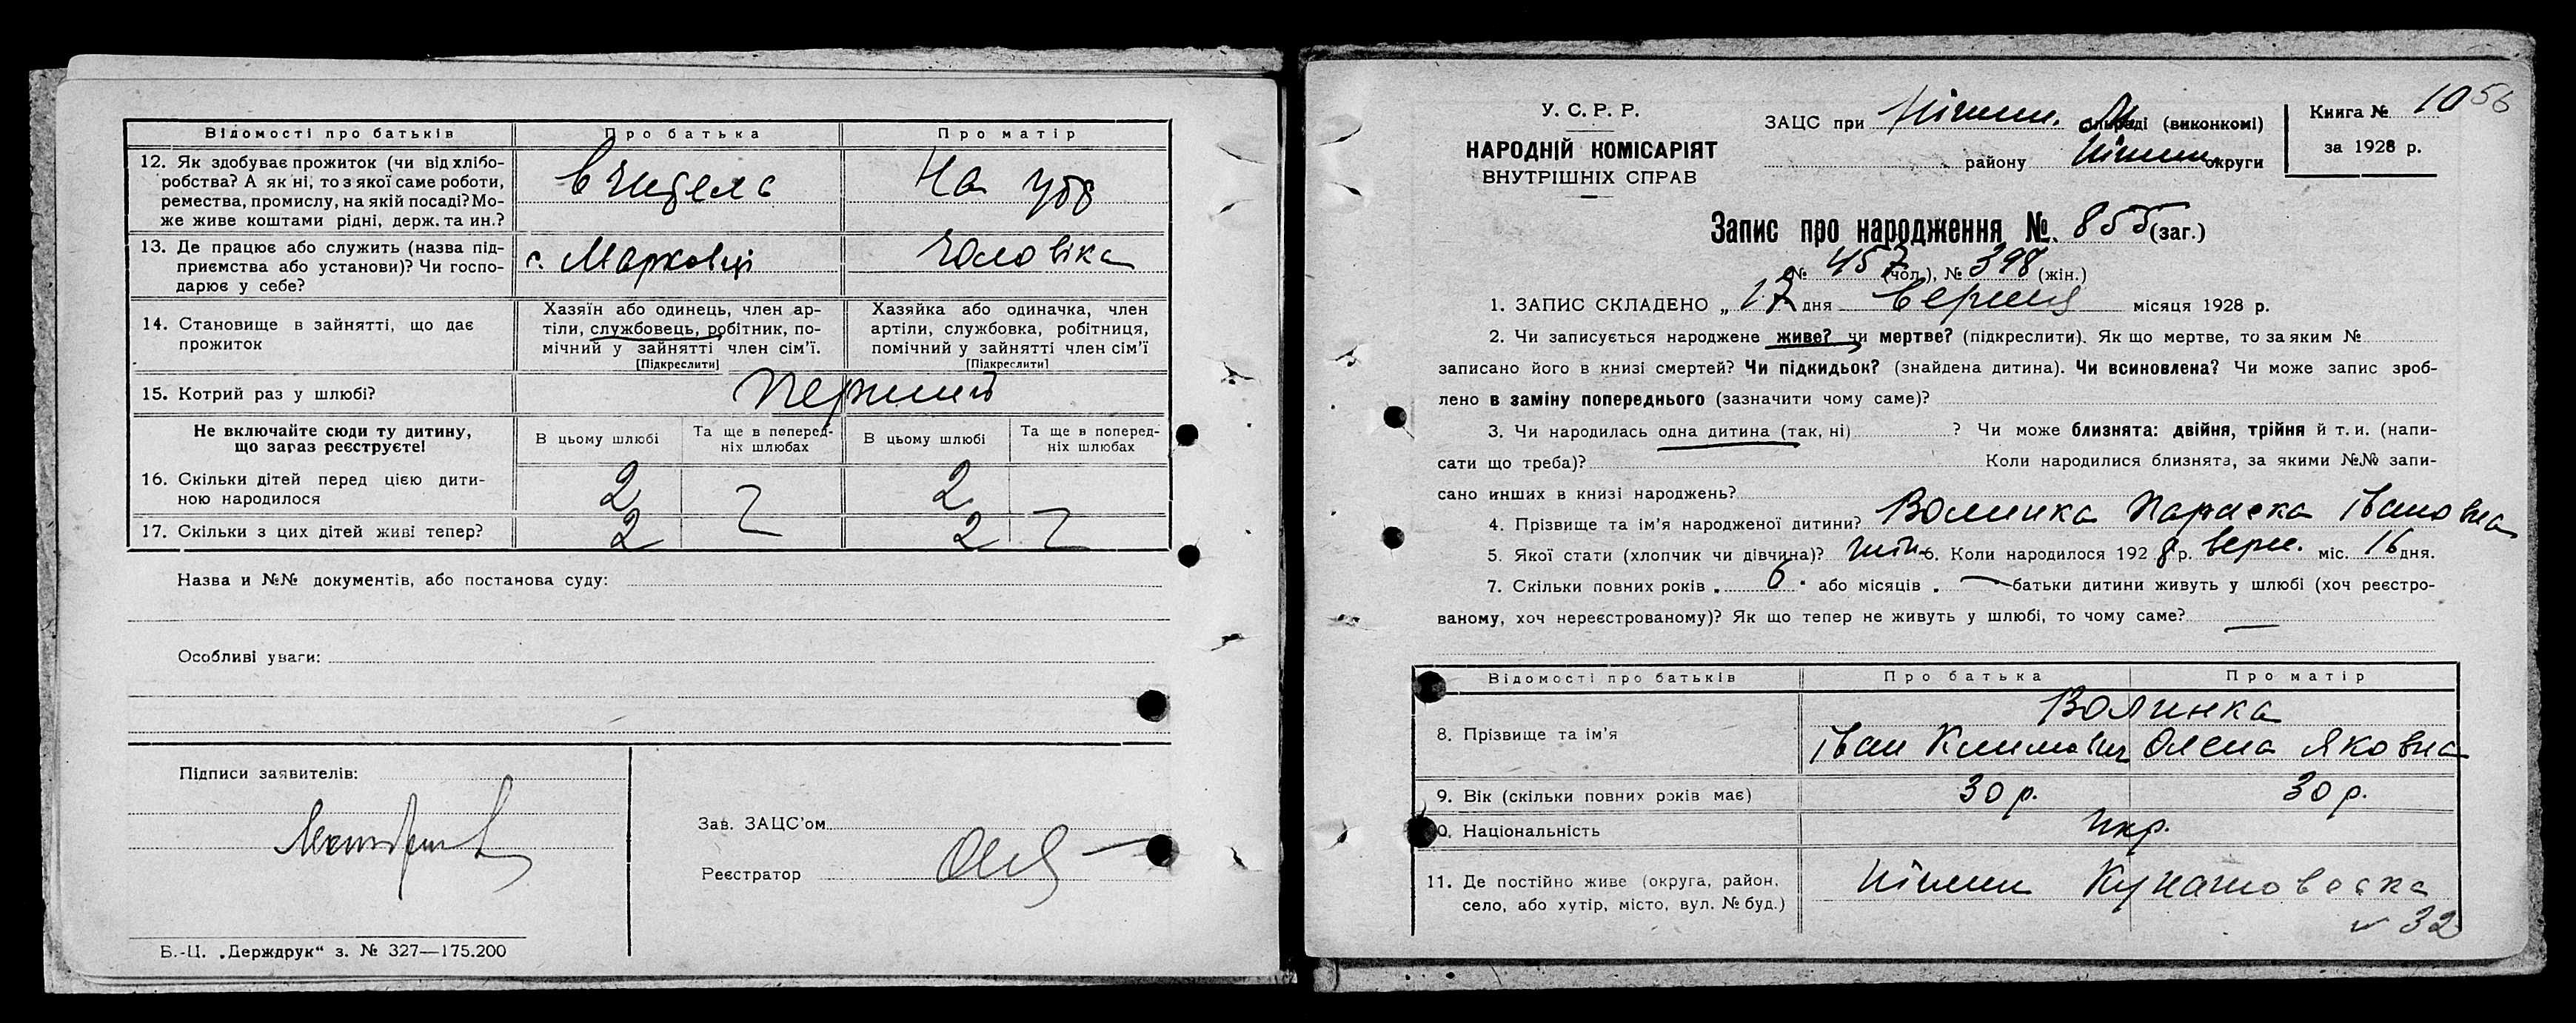 Відомості про батьків Про батька Про матір
12. Як здобуває прожиток (чи від хлібо-
робства? А як ні, то з якої саме роботи,
ремества, промислу, на якій посаді? Мо-
же живе коштами рідні, держ. та ин.?
вчитель На утр
13. Де працює або служить (назва під-
приємства або установи)? Чи госпо-
дарює у себе?
с. Марковці чоловіка
14. Становище в зайнятті, що дає
прожиток
Хазяїн або одинець, член ар-
тіли, службовець, робітник, по-
мічний у зайнятті член сім'ї.
[Підкреслити]
Хазяйка або одиначка, член
артіли, службовка, робітниця,
помічний у зайнятті член сім'ї
[Підкреслити]
15. Котрий раз у шлюбі? перший
Не включайте сюди ту дитину,
що загаз реєструєте!
В цьому шлюбі Та ще в поперед-
ніх шлюбах В цьому шлюбі Та ще в поперед-
ніх шлюбах
16. Скільки дітей перед цією дити-
ною народилося 2 2
17. Скільки з цих дітей живі тепер? 2 2
Назва и №№ документів, або постанова суду:
Особливі уваги:
Підписи заявителів:
Зав. ЗАЦС'ом
Реєстратор
Б.-Ц. „Держдрук“ з. № 327—175.200
У. С. Р. Р.
НАРОДНІЙ КОМІСАРІЯТ
ВНУТРІШНІХ СПРАВ
ЗАЦС при Ніжин. (виконкомі)
району Ніжин. округи
Книга № 10 56
за 1928 р.
Запис про народження № 855 (заг.)
№ 457 (чол.), № 398 (жін.)
1. ЗАПИС СКЛАДЕНО „ 17 дня вересня місяця 1928 р.
2. Чи записується народжене живе? чи мертве? (підкреслити). Як що мертве, то за яким №
записано його в книзі смертей? Чи підкидьок? (знайдена дитина). Чи всиновлена? Чи може запис зроб-
лено в заміну попереднього (зазначити чому саме)?
3. Чи народилась одна дитина (так, ні) ? Чи може близнята: двійня, трійня й т. и. (напи-
сати що треба)? Коли народилися близнята, за якими №№ запи-
сано инших в книзі народжень?
4. Прізвище та ім'я народженої дитини? Волинка Параска Івановна
5. Якої стати (хлопчик чи дівчина)? жін. 6. Коли народилося 1928 р. верес. міс. 16 дня.
7. Скільки повних років „ 6 “ або місяців „ — батьки дитини живуть у шлюбі (хоч реєстро-
ваному, хоч нереєстрованому)? Як що тепер не живуть у шлюбі, то чому саме? —
Відомості про батьків Про батька Про матір
8. Прізвище та ім'я Волинка
Іван Климович Олена Яковна
9. Вік (скільки повних років має) 30 р. 30 р.
10. Національність Укр.
11. Де постійно живе (округа, район,
село, або хутір, місто, вул. № буд.)
Ніжин Кунашовська
32